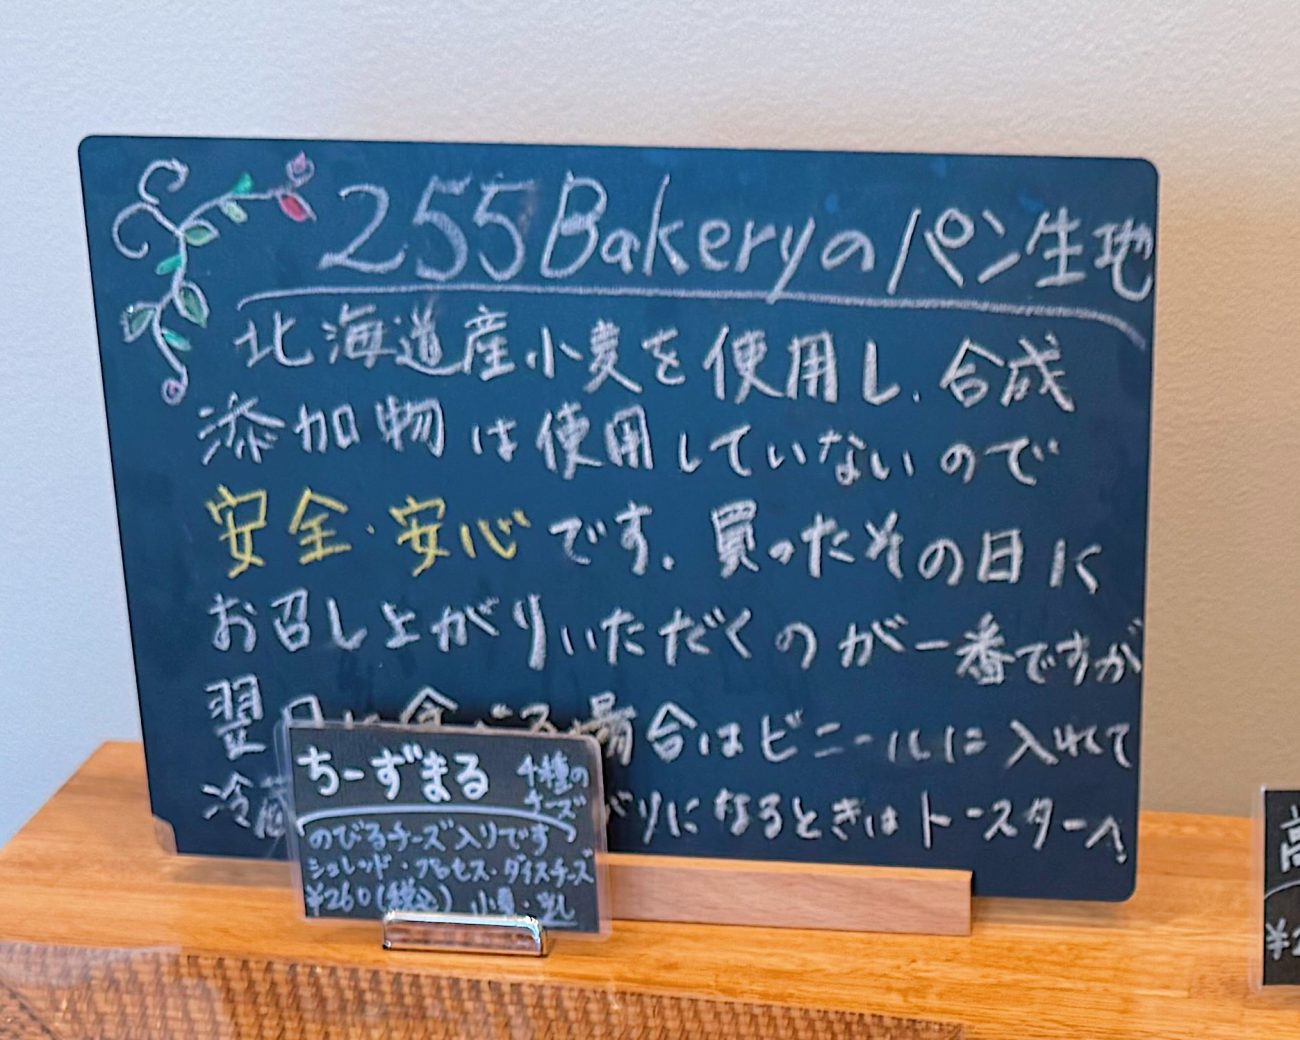 255Bakeryのパン生地
北海道産小麦を使用し、合成
添加物は使用していないので
安全・安心です。買ったその日に
お召し上がりいただくのが一番ですが
翌日に食べる場合はビニールに入れて
冷蔵 がりになるときはトースターへ!
ちーずまる 4種の
チーズ
のびるチーズ入りです
シュレッド・プロセス・ダイスチーズ
¥260(税込) 小麦・乳
高
¥2